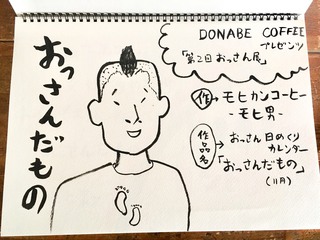 おっさんだもの
DONABE COFFEE
プレゼンツ
「第2回おっさん展」
作→モヒカンコーヒー
-モヒ男-
作品名→おっさん日めくり
カレンダー
「おっさんだもの」
(11月)